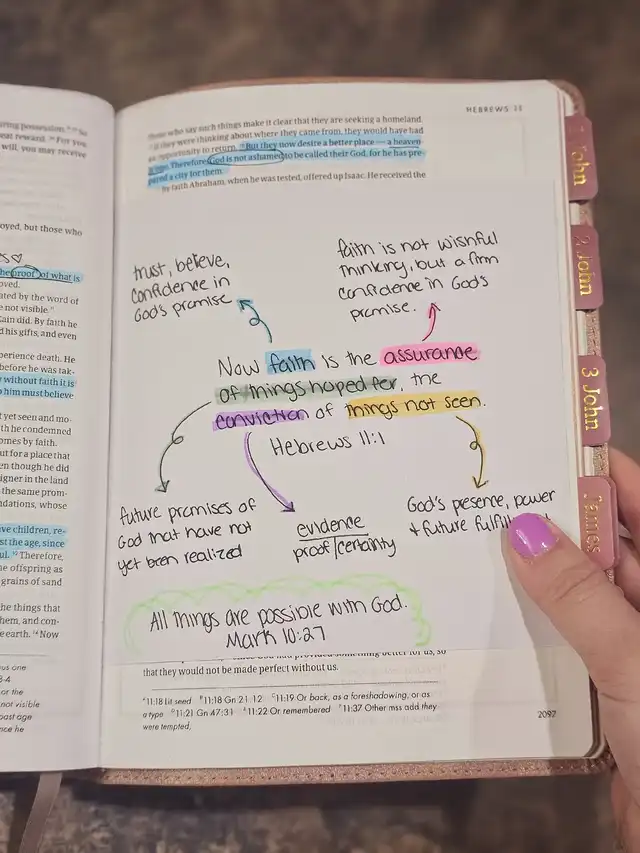 ring possession.
eat reward. ³⁶ For you
will, you may receive
oyed, but those who
the proof of what is
oved.
ated by the word of
e not visible.
ain did. By faith he
d his gifts, and even
perience death. He
before he was tak-
without faith it is
him must believe
yet seen and mo-
th he condemned
omes by faith.
ut for a place that
en though he did
igner in the land
the same prom-
ndations, whose
ve children, re-
st the age, since
Therefore,
e offspring as
grains of sand
the things that
hem, and con-
e earth. ¹⁴ Now
us one
3-4
or the
not visible
past age
nce he
HEBREWS 11
those who say such things make it clear that they are seeking a homeland
if they were thinking about where they came from, they would have had
an opportunity to return. ¹⁶ But they now desire a better place — a heaven
Therefore God is not ashamed to be called their God, for he has pre-
pared a city for them.
by faith Abraham, when he was tested, offered up Isaac. He received the
trust, believe,
confidence in
God's promise
faith is not wishful
thinking, but a firm
confidence in God's
promise.
Now faith is the assurance
of things hoped for, the
conviction of things not seen.
Hebrews 11:1
future promises of
God that have not
yet been realized
evidence
proof/certainty
God's presence, power
+ future
All things are possible with God.
Mark 10:27
that they would not be made perfect without us.
11:18 Lit seed 11:18 Gn 21:12 11:19 Or back, as a foreshadowing, or as
a type 11:21 Gn 47:31 11:22 Or remembered 11:37 Other mss add they
were tempted,
2097
1 John
2 John
3 John
James